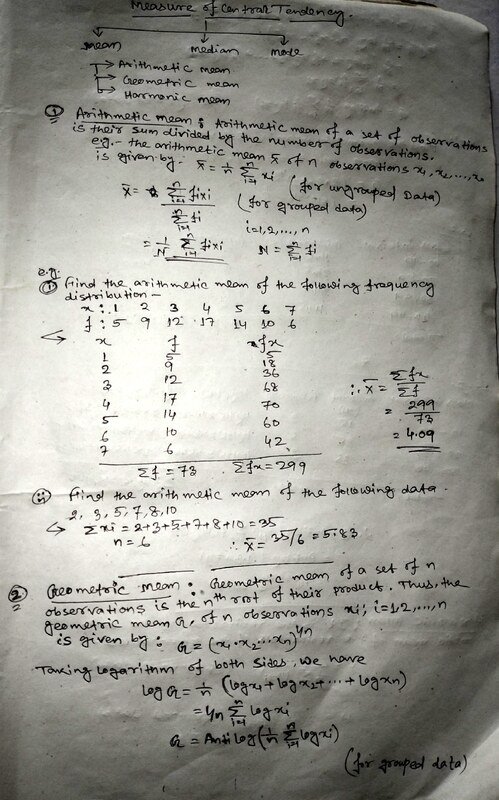 Measure of Central Tendency.
mean median mode
→ Arithmetic mean
→ Geometric mean
→ Harmonic mean
① Arithmetic mean : Arithmetic mean of a set of observations
is their sum divided by the number of observations.
e.g.- the arithmetic mean x̄ of n observations x₁, x₂, ..., xₙ
is given by. x̄ = 1/n Σⁿᵢ₌₁ xi (for ungrouped Data)
x̄ = Σⁿᵢ₌₁ fixi / Σⁿᵢ₌₁ fi (for grouped data)
i=1,2,...,n
= 1/N Σⁿᵢ₌₁ fixi N = Σⁿᵢ₌₁ fi
e.g.
① Find the arithmetic mean of the following frequency
distribution —
x : 1 2 3 4 5 6 7
f : 5 9 12 17 14 10 6
x f fx
1 5 5
2 9 18
3 12 36
4 17 68
5 14 70
6 10 60
7 6 42
∴ x̄ = Σfx / Σf
= 299 / 73
= 4.09
Σf = 73 Σfx = 299
(ii) Find the arithmetic mean of the following data.
2, 3, 5, 7, 8, 10
Σxi = 2+3+5+7+8+10 = 35
n = 6 ∴ x̄ = 35/6 = 5.83
② Geometric mean : Geometric mean of a set of n
observations is the nth root of their product. Thus, the
geometric mean G, of n observations xi, i=1,2,...,n
is given by : G = (x₁·x₂...xn)^1/n
Taking logarithm of both sides, we have
log G = 1/n (log x₁ + log x₂ + ... + log xn)
= 1/n Σⁿᵢ₌₁ log xi
G = Antilog (1/n Σⁿᵢ₌₁ log xi)
(for grouped data)